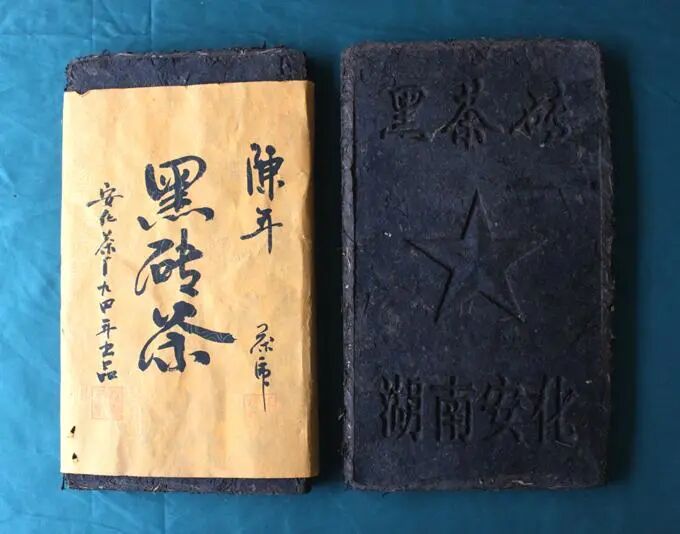 陳年
茶席
黑砖茶
安化茶厂九四年出品
黑茶砖
湖南安化